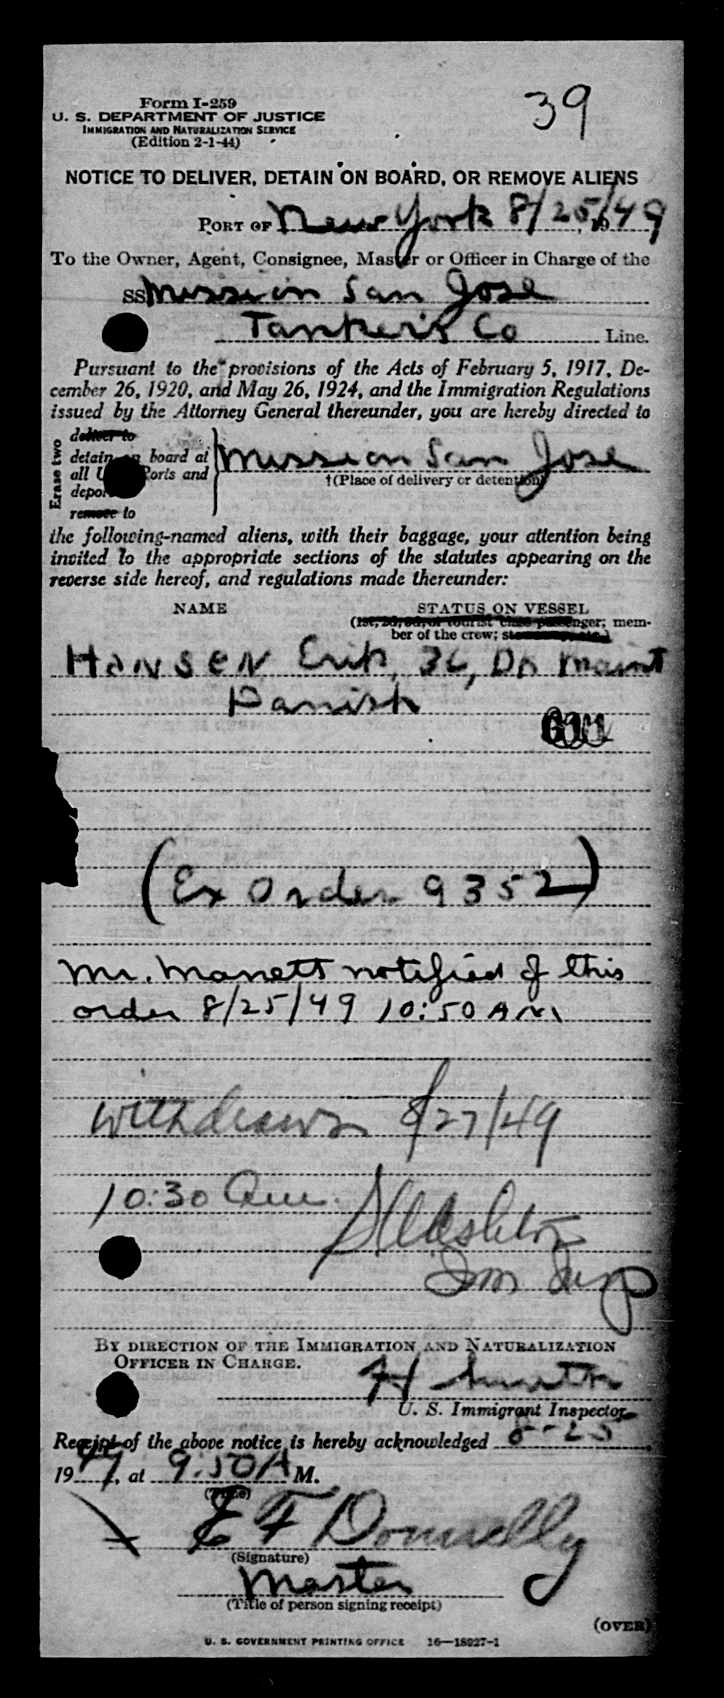 39
Form I-259
U. S. DEPARTMENT OF JUSTICE
IMMIGRATION AND NATURALIZATION SERVICE
(Edition 2-1-44)
NOTICE TO DELIVER, DETAIN ON BOARD, OR REMOVE ALIENS
PORT OF New York 8/25/49
To the Owner, Agent, Consignee, Master or Officer in Charge of the
SS Mission San Jose
Tankers Co Line.
Pursuant to the provisions of the Acts of February 5, 1917, De-
cember 26, 1920, and May 26, 1924, and the Immigration Regulations
issued by the Attorney General thereunder, you are hereby directed to
Erase two
deliver to
detain on board at
all U Ports and
depor
remove to
Mission San Jose
†(Place of delivery or detention)
the following-named aliens, with their baggage, your attention being
invited to the appropriate sections of the statutes appearing on the
reverse side hereof, and regulations made thereunder:
NAME STATUS ON VESSEL
(1st, 2d, 3d, or tourist class passenger; mem-
ber of the crew;
HANSEN Erik, 36, Dk Maint
Danish
(Ex Order 9352)
Mr. Manett notified of this
order 8/25/49 10:50 AM
withdrawn 8/27/49
10:30 am.
Imm Insp
BY DIRECTION OF THE IMMIGRATION AND NATURALIZATION
OFFICER IN CHARGE.
U. S. Immigrant Inspector.
Receipt of the above notice is hereby acknowledged 8-25
1949, at 9:50 A M.
(Time)
E F Donnelly
(Signature)
Master
(Title of person signing receipt)
(OVER)
U. S. GOVERNMENT PRINTING OFFICE 16—18927-1